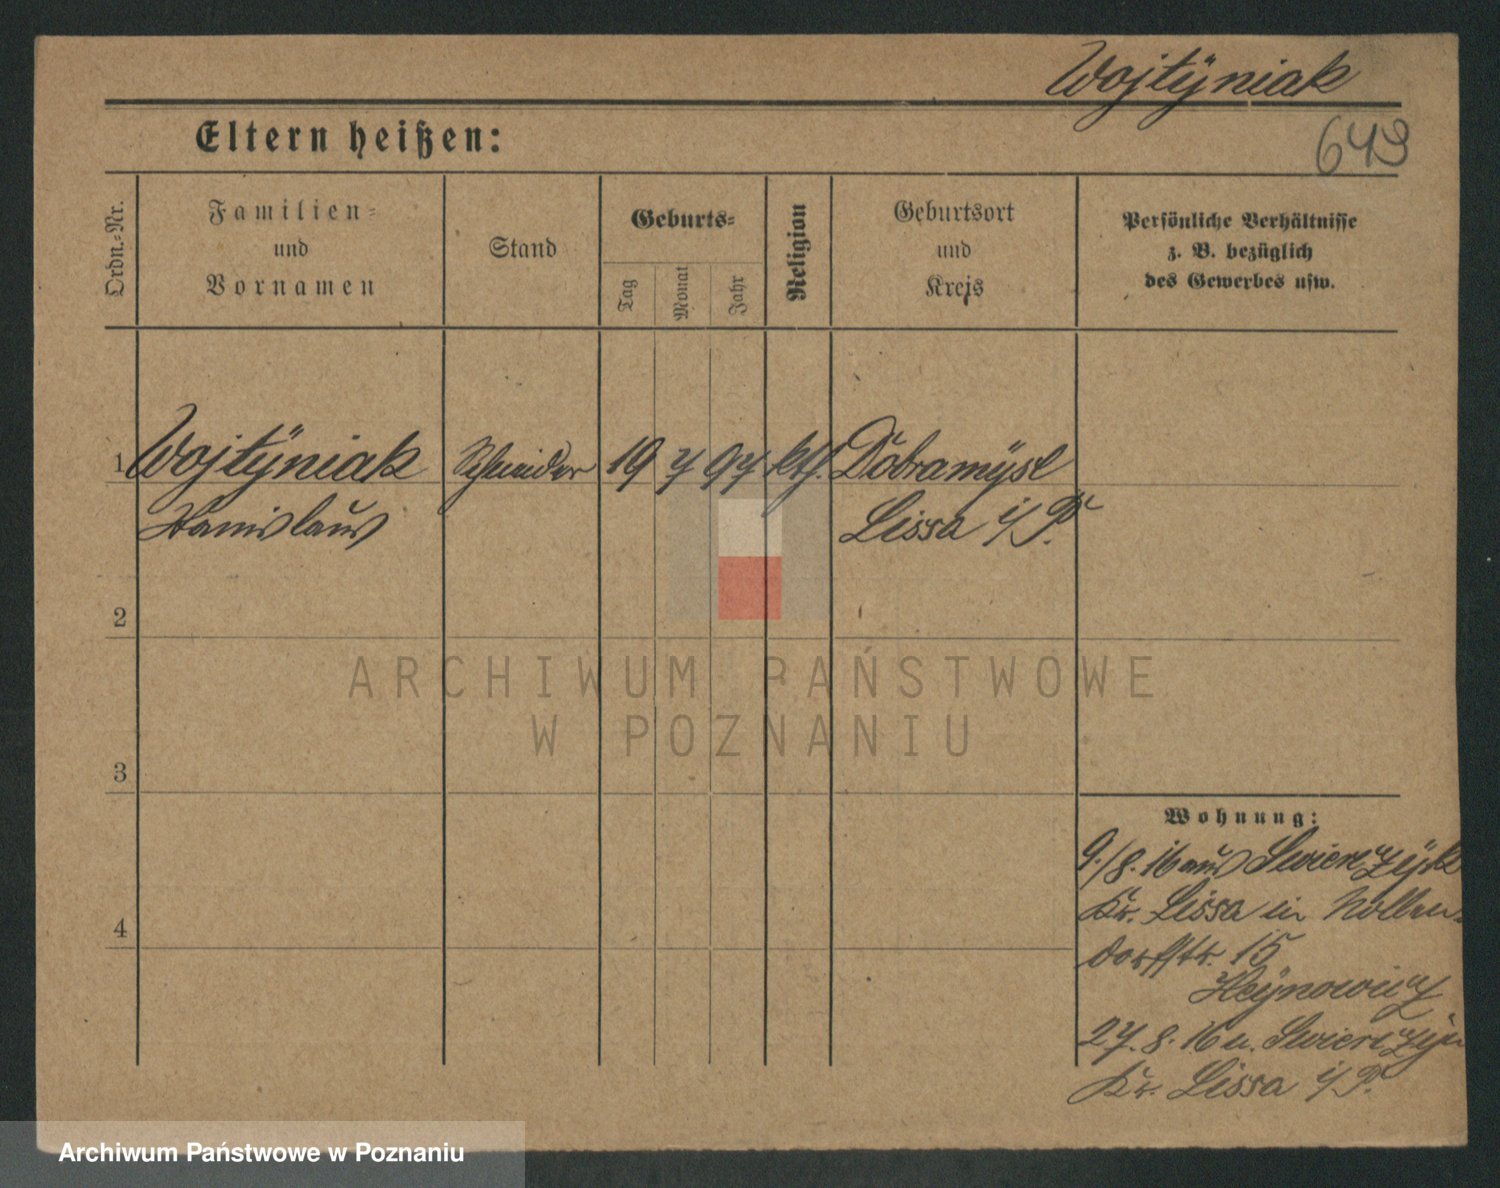 Wojtÿniak
Eltern heißen:
643
Ordn.-Nr.
Familien-
und
Vornamen
Stand
Geburts-
Tag
Monat
Jahr
Religion
Geburtsort
und
Kreis
Persönliche Verhältnisse
z. B. bezüglich
des Gewerbes usw.
1 Wojtÿniak Schneider 19 7 97 kth. Dobramÿsl
Stanislaus Lissa i/P.
2
ARCHIWUM PAŃSTWOWE
W POZNANIU
3
Wohnung:
9./8. 16 aus
Kr. Lissa in Nollen-
dorfstr. 15
Heÿnowicz
27. 8. 16 n.
4
Kr. Lissa i/P.
Archiwum Państwowe w Poznaniu